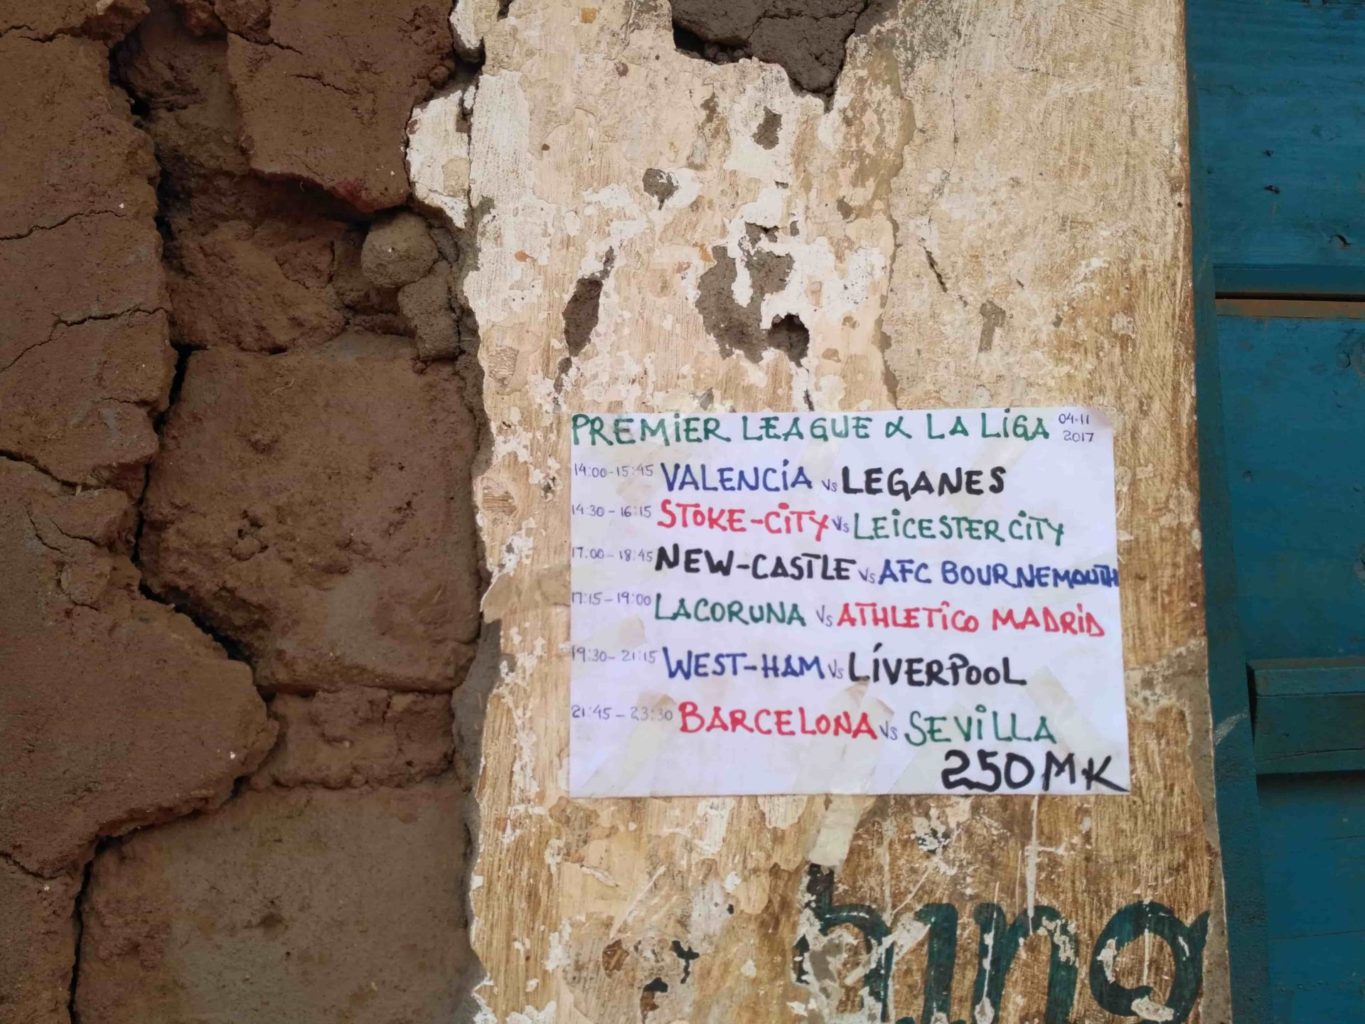 PREMIER LEAGUE & LA LIGA 04.11 2017
14:00-15:45 VALENCIA vs LEGANES
14:30-16:15 STOKE-CITY vs LEICESTER CITY
17:00-18:45 NEW-CASTLE vs AFC BOURNEMOUTH
17:15-19:00 LACORUNA vs ATHLETICO MADRID
19:30-21:15 WEST-HAM vs LIVERPOOL
21:45-23:30 BARCELONA vs SEVILLA
250MK